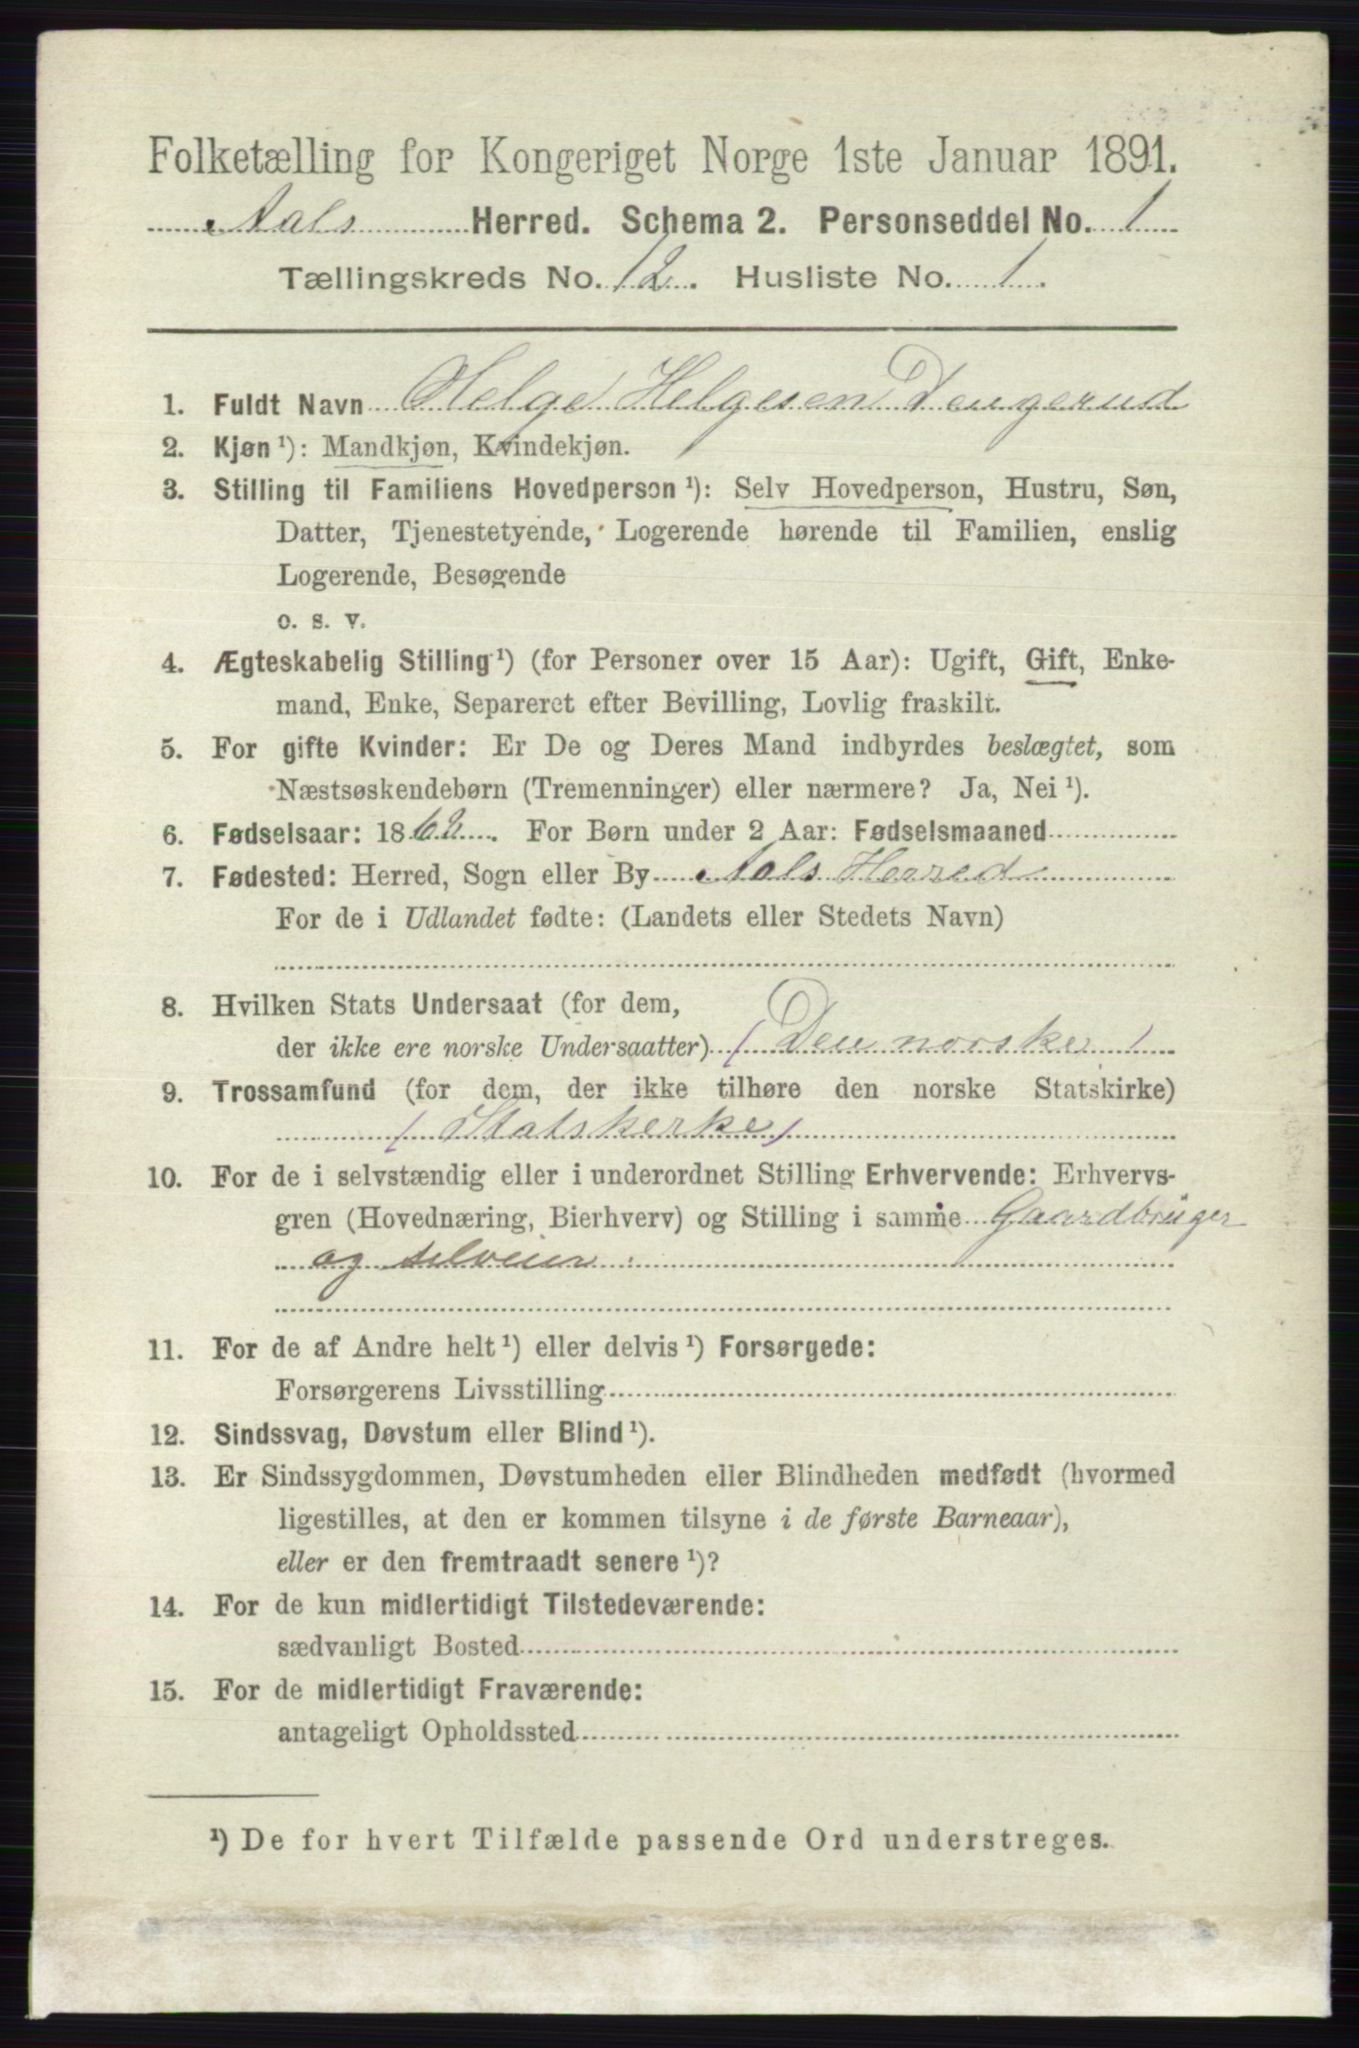 Folketælling for Kongeriget Norge 1ste Januar 1891.
Aals Herred. Schema 2. Personseddel No. 1
Tællingskreds No. 12. Husliste No. 1.
1. Fuldt Navn Helge Helgesen Dengerud
2. Kjøn ¹): Mandkjøn, Kvindekjøn.
3. Stilling til Familiens Hovedperson ¹): Selv Hovedperson, Hustru, Søn,
Datter, Tjenestetyende, Logerende hørende til Familien, enslig
Logerende, Besøgende
o. s. v.
4. Ægteskabelig Stilling ¹) (for Personer over 15 Aar): Ugift, Gift, Enke-
mand, Enke, Separeret efter Bevilling, Lovlig fraskilt.
5. For gifte Kvinder: Er De og Deres Mand indbyrdes beslægtet, som
Næstsøskendebørn (Tremenninger) eller nærmere? Ja, Nei ¹).
6. Fødselsaar: 1862. For Børn under 2 Aar: Fødselsmaaned
7. Fødested: Herred, Sogn eller By Aals Herred
For de i Udlandet fødte: (Landets eller Stedets Navn)
8. Hvilken Stats Undersaat (for dem,
der ikke ere norske Undersaatter) (Den norske)
9. Trossamfund (for dem, der ikke tilhøre den norske Statskirke)
(Statskerke)
10. For de i selvstændig eller i underordnet Stilling Erhvervende: Erhvervs-
gren (Hovednæring, Bierhverv) og Stilling i samme Gaardbruger
og selveier
11. For de af Andre helt ¹) eller delvis ¹) Forsørgede:
Forsørgerens Livsstilling
12. Sindssvag, Døvstum eller Blind ¹).
13. Er Sindssygdommen, Døvstumheden eller Blindheden medfødt (hvormed
ligestilles, at den er kommen tilsyne i de første Barneaar),
eller er den fremtraadt senere ¹)?
14. For de kun midlertidigt Tilstedeværende:
sædvanligt Bosted
15. For de midlertidigt Fraværende:
antageligt Opholdssted
¹) De for hvert Tilfælde passende Ord understreges.